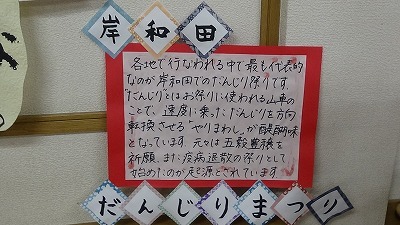 岸和田
各地で行なわれる中で最も代表的
なのが岸和田でのだんじり祭りです。
"だんじり"とはお祭りに使われる山車の
ことで、速度に乗っただんじりを方向
転換させる"やりまわし"が醍醐味
となっています。元々は五穀豊穣を
祈願、また疫病退散の祭りとして
始めたのが起源とされています。
だんじりまつり